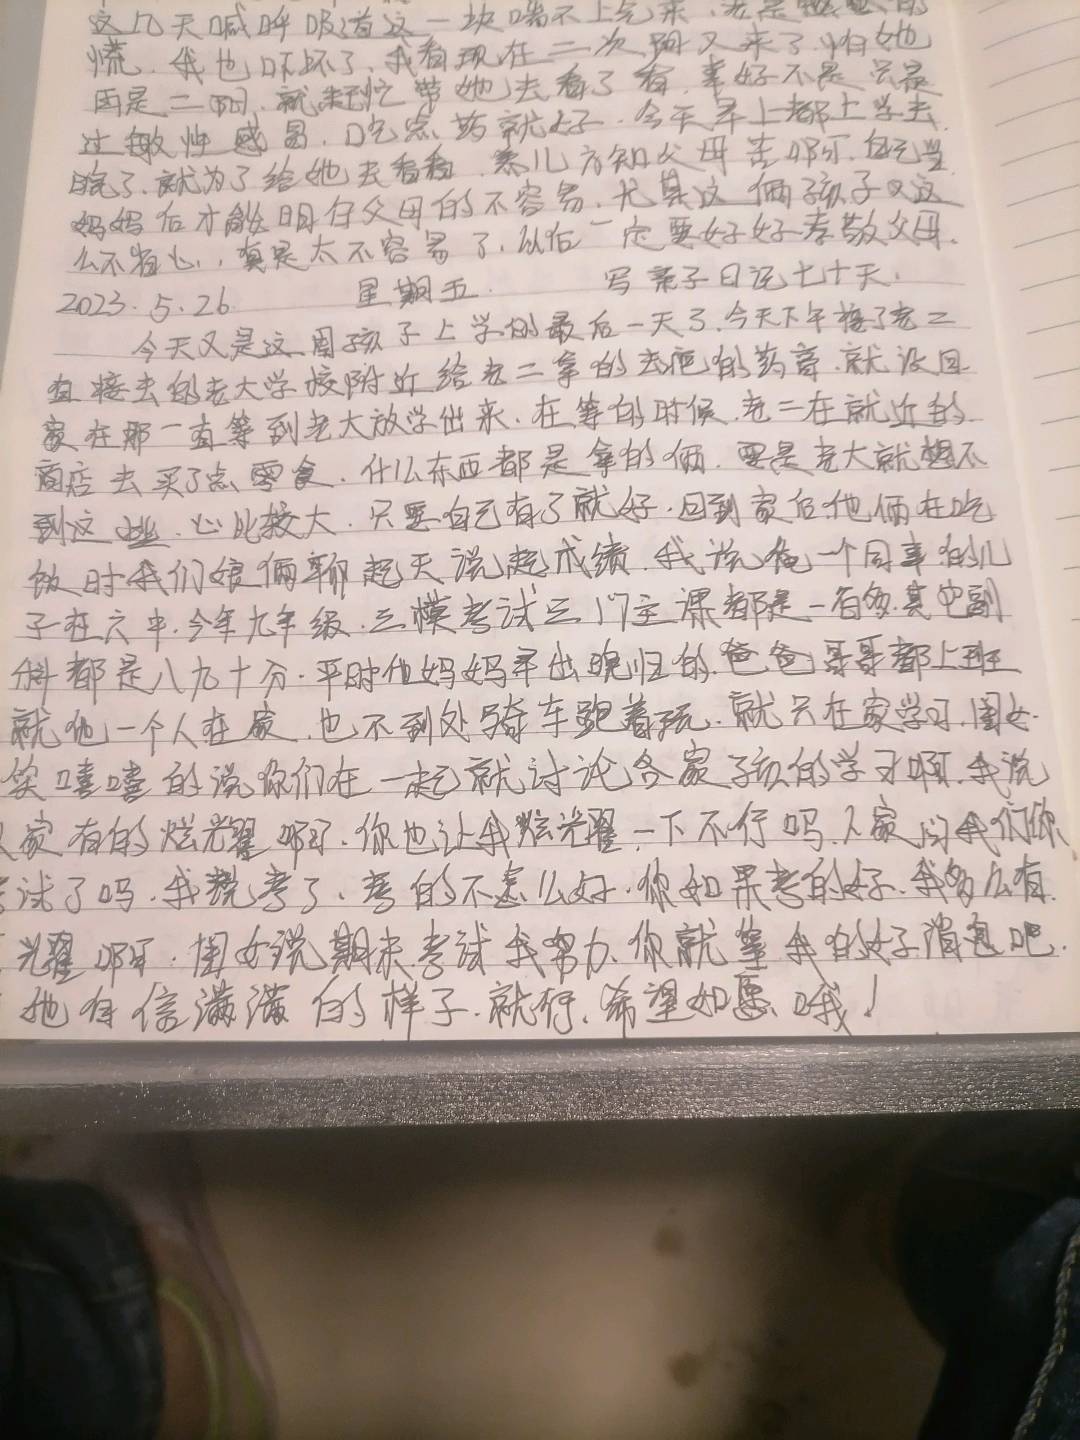 这几天喊呼吸道这一块喘不上气来,老是
慌,我也吓坏了,我看现在二次阳又来了,怕她
因是二阳,就赶忙带她去看了看,幸好不是,只是
过敏性感冒,吃点药就好,今天早上都上学去
晚了,就为了给她去看看,养儿方知父母苦啊,自己当
妈妈后才能明仔父母的不容易,尤其这俩孩子又这
么不省心,真是太不容易了,以后一定要好好孝敬父母.
2023.5.26. 星期五. 写亲子日记七十天.
今天又是这周孩子上学的最后一天了,今天下午接了老二
直接去的老大学校附近给老二拿的去疤的药膏,就没回
家在那一直等到老大放学出来,在等的时候,老二在就近的
商店去买了点零食,什么东西都是拿的俩,要是老大就想不
到这些,心比较大,只要自己有了就好,回到家后,他俩在吃
饭时我们娘俩聊起天说起成绩,我说俺一个同事的儿
子在六中,今年九年级,三模考试三门主课都是一百多,其中副
科都是八九十分,平时他妈妈早出晚归的,爸爸哥哥都上班
就他一个人在家,也不到处骑车跑着玩,就只在家学习,闺女
笑嘻嘻的说你们在一起就讨论各家孩的学习啊,我说
人家有的炫光耀啊,你也让我炫光耀一下不行吗,人家问我们你
考试了吗,我说考了,考的不怎么好,你如果考的好,我多么有
光耀啊,闺女说期末考试我努力,你就拿我的好消息吧.
她有信满满的样子,就行,希望如愿哦!